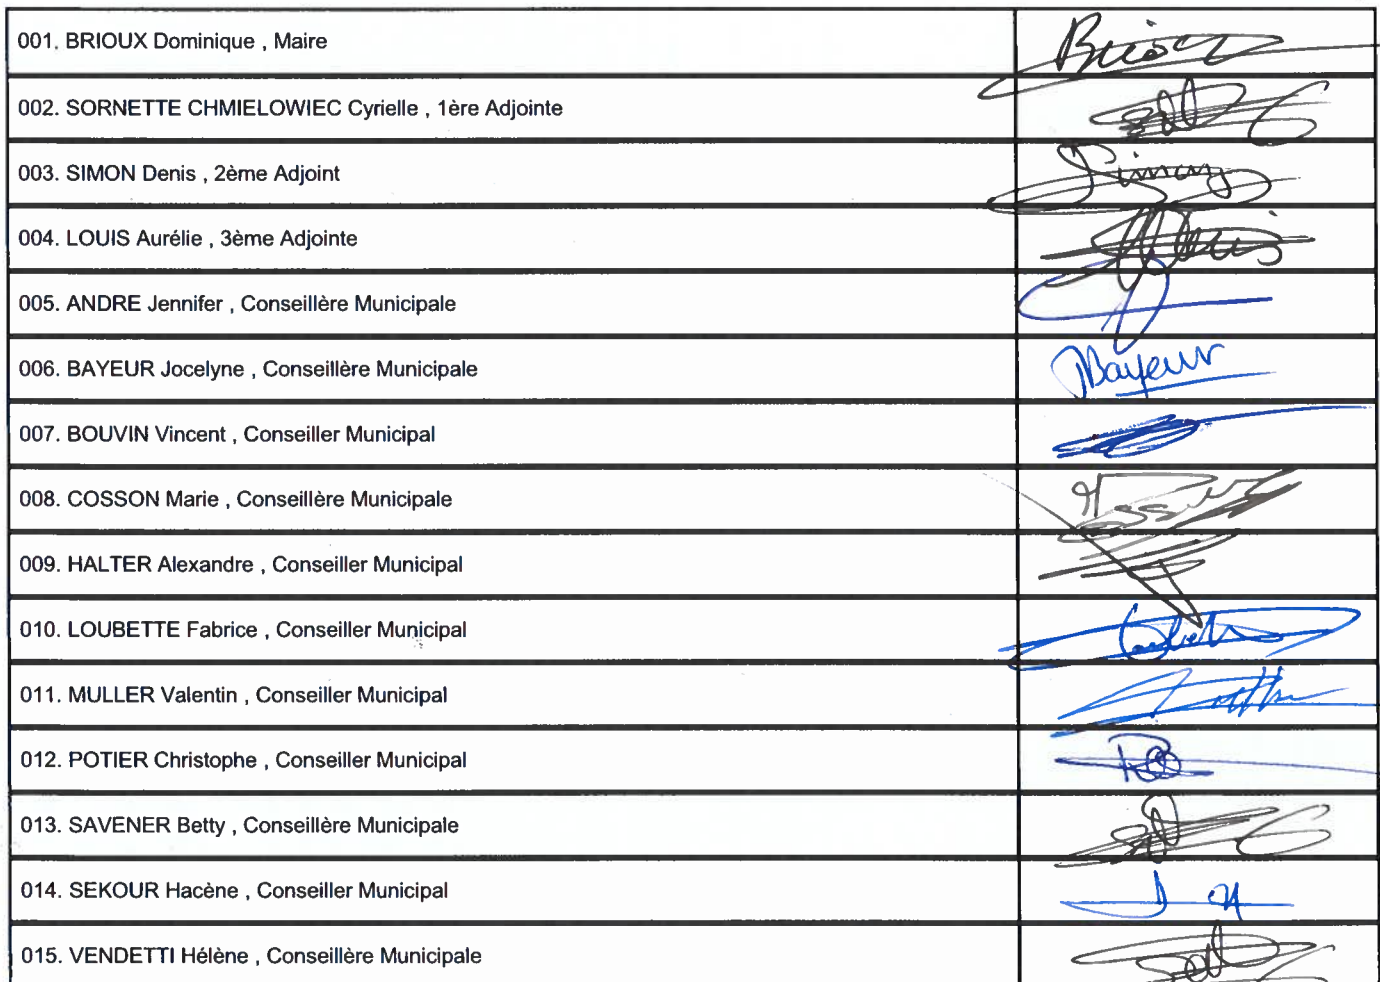 001. BRIOUX Dominique , Maire
Brioux
002. SORNETTE CHMIELOWIEC Cyrielle , 1ère Adjointe
003. SIMON Denis , 2ème Adjoint
Simon
004. LOUIS Aurélie , 3ème Adjointe
005. ANDRE Jennifer , Conseillère Municipale
006. BAYEUR Jocelyne , Conseillère Municipale
Bayeur
007. BOUVIN Vincent , Conseiller Municipal
008. COSSON Marie , Conseillère Municipale
009. HALTER Alexandre , Conseiller Municipal
010. LOUBETTE Fabrice , Conseiller Municipal
011. MULLER Valentin , Conseiller Municipal
012. POTIER Christophe , Conseiller Municipal
013. SAVENER Betty , Conseillère Municipale
014. SEKOUR Hacène , Conseiller Municipal
015. VENDETTI Hélène , Conseillère Municipale